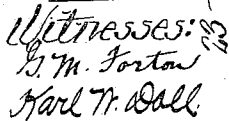 Witnesses:
G. M. Forton
Karl W. Doll.